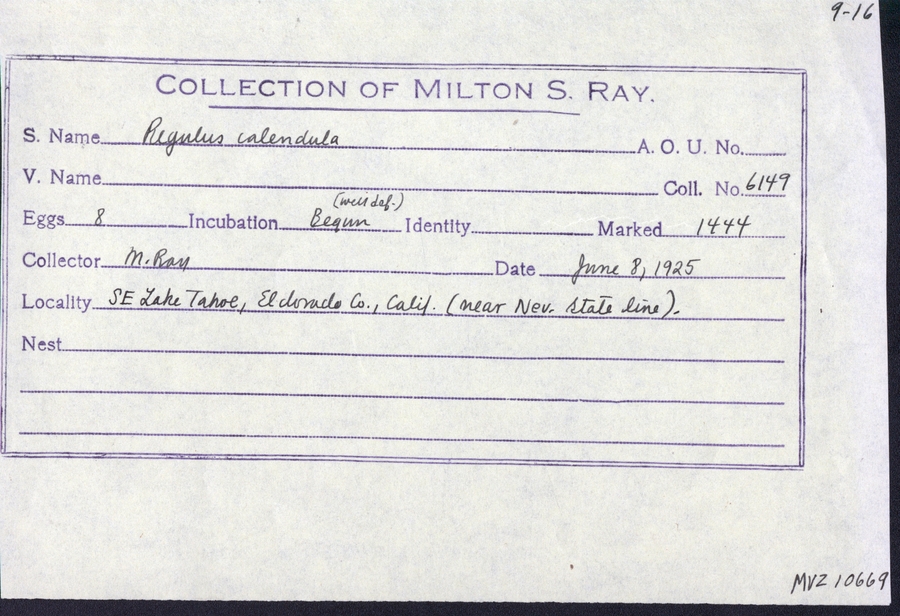 9-16
COLLECTION OF MILTON S. RAY.
S. Name Regulus calendula A. O. U. No.
V. Name Coll. No. 6149
(well def.)
Eggs 8 Incubation Begun Identity Marked 1444
Collector M. Ray Date June 8, 1925
Locality SE Lake Tahoe, Eldorado Co., Calif. (near Nev. state line).
Nest
MVZ 10669